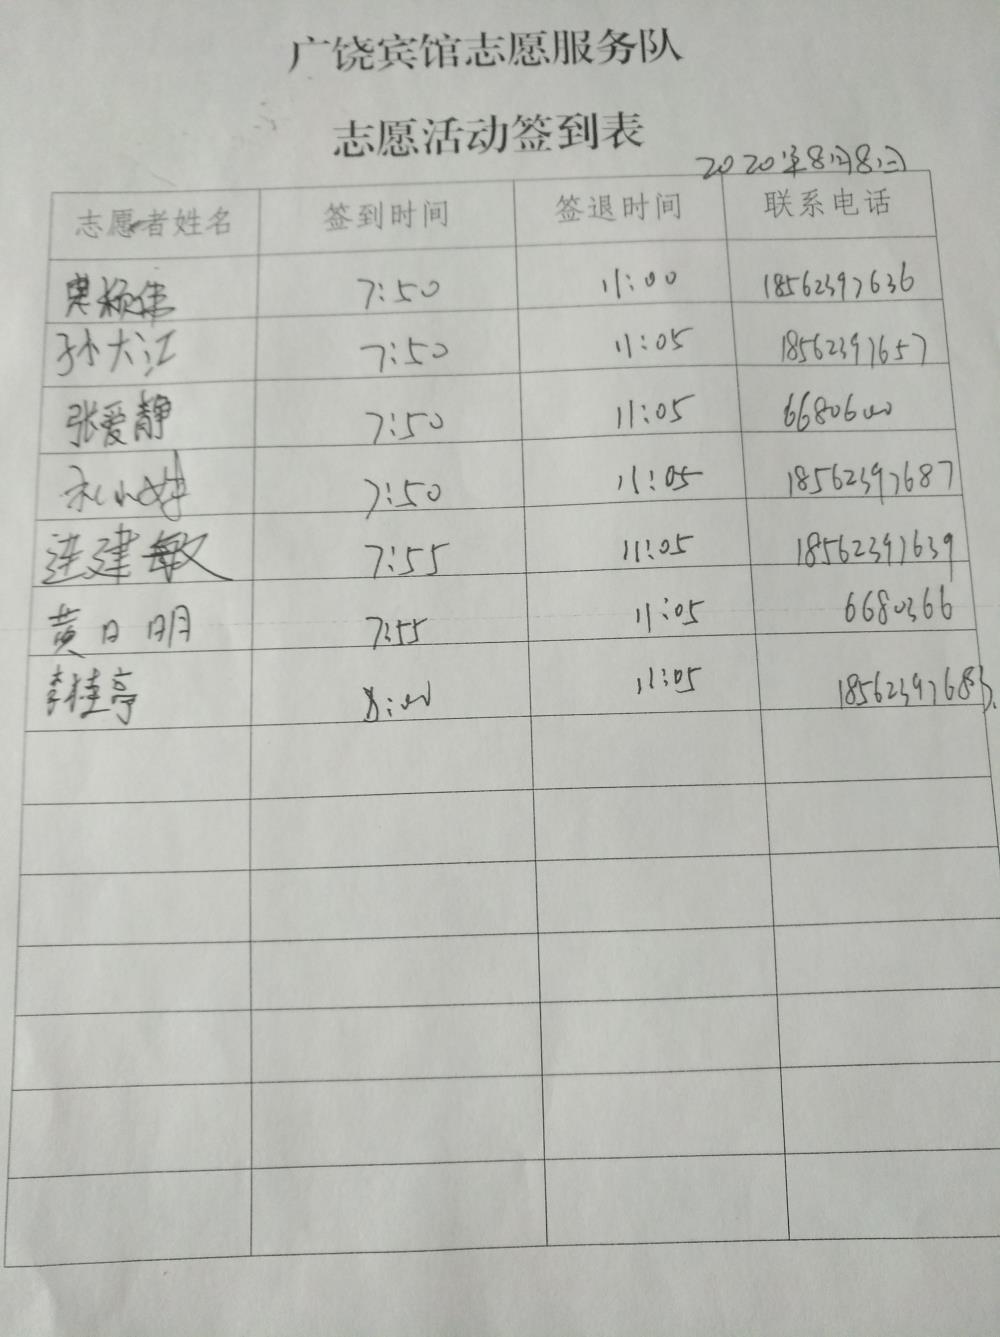 广饶宾馆志愿服务队
志愿活动签到表
2020年8月8日
志愿者姓名 签到时间 签退时间 联系电话
7:50 11:00 18562397636
孙大江 7:50 11:05 18562397657
张爱静 7:50 11:05 6680600
7:50 11:05 18562397687
建敏 7:55 11:05 18562397639
黄日明 7:55 11:05 6680366
李桂亭 8:00 11:05